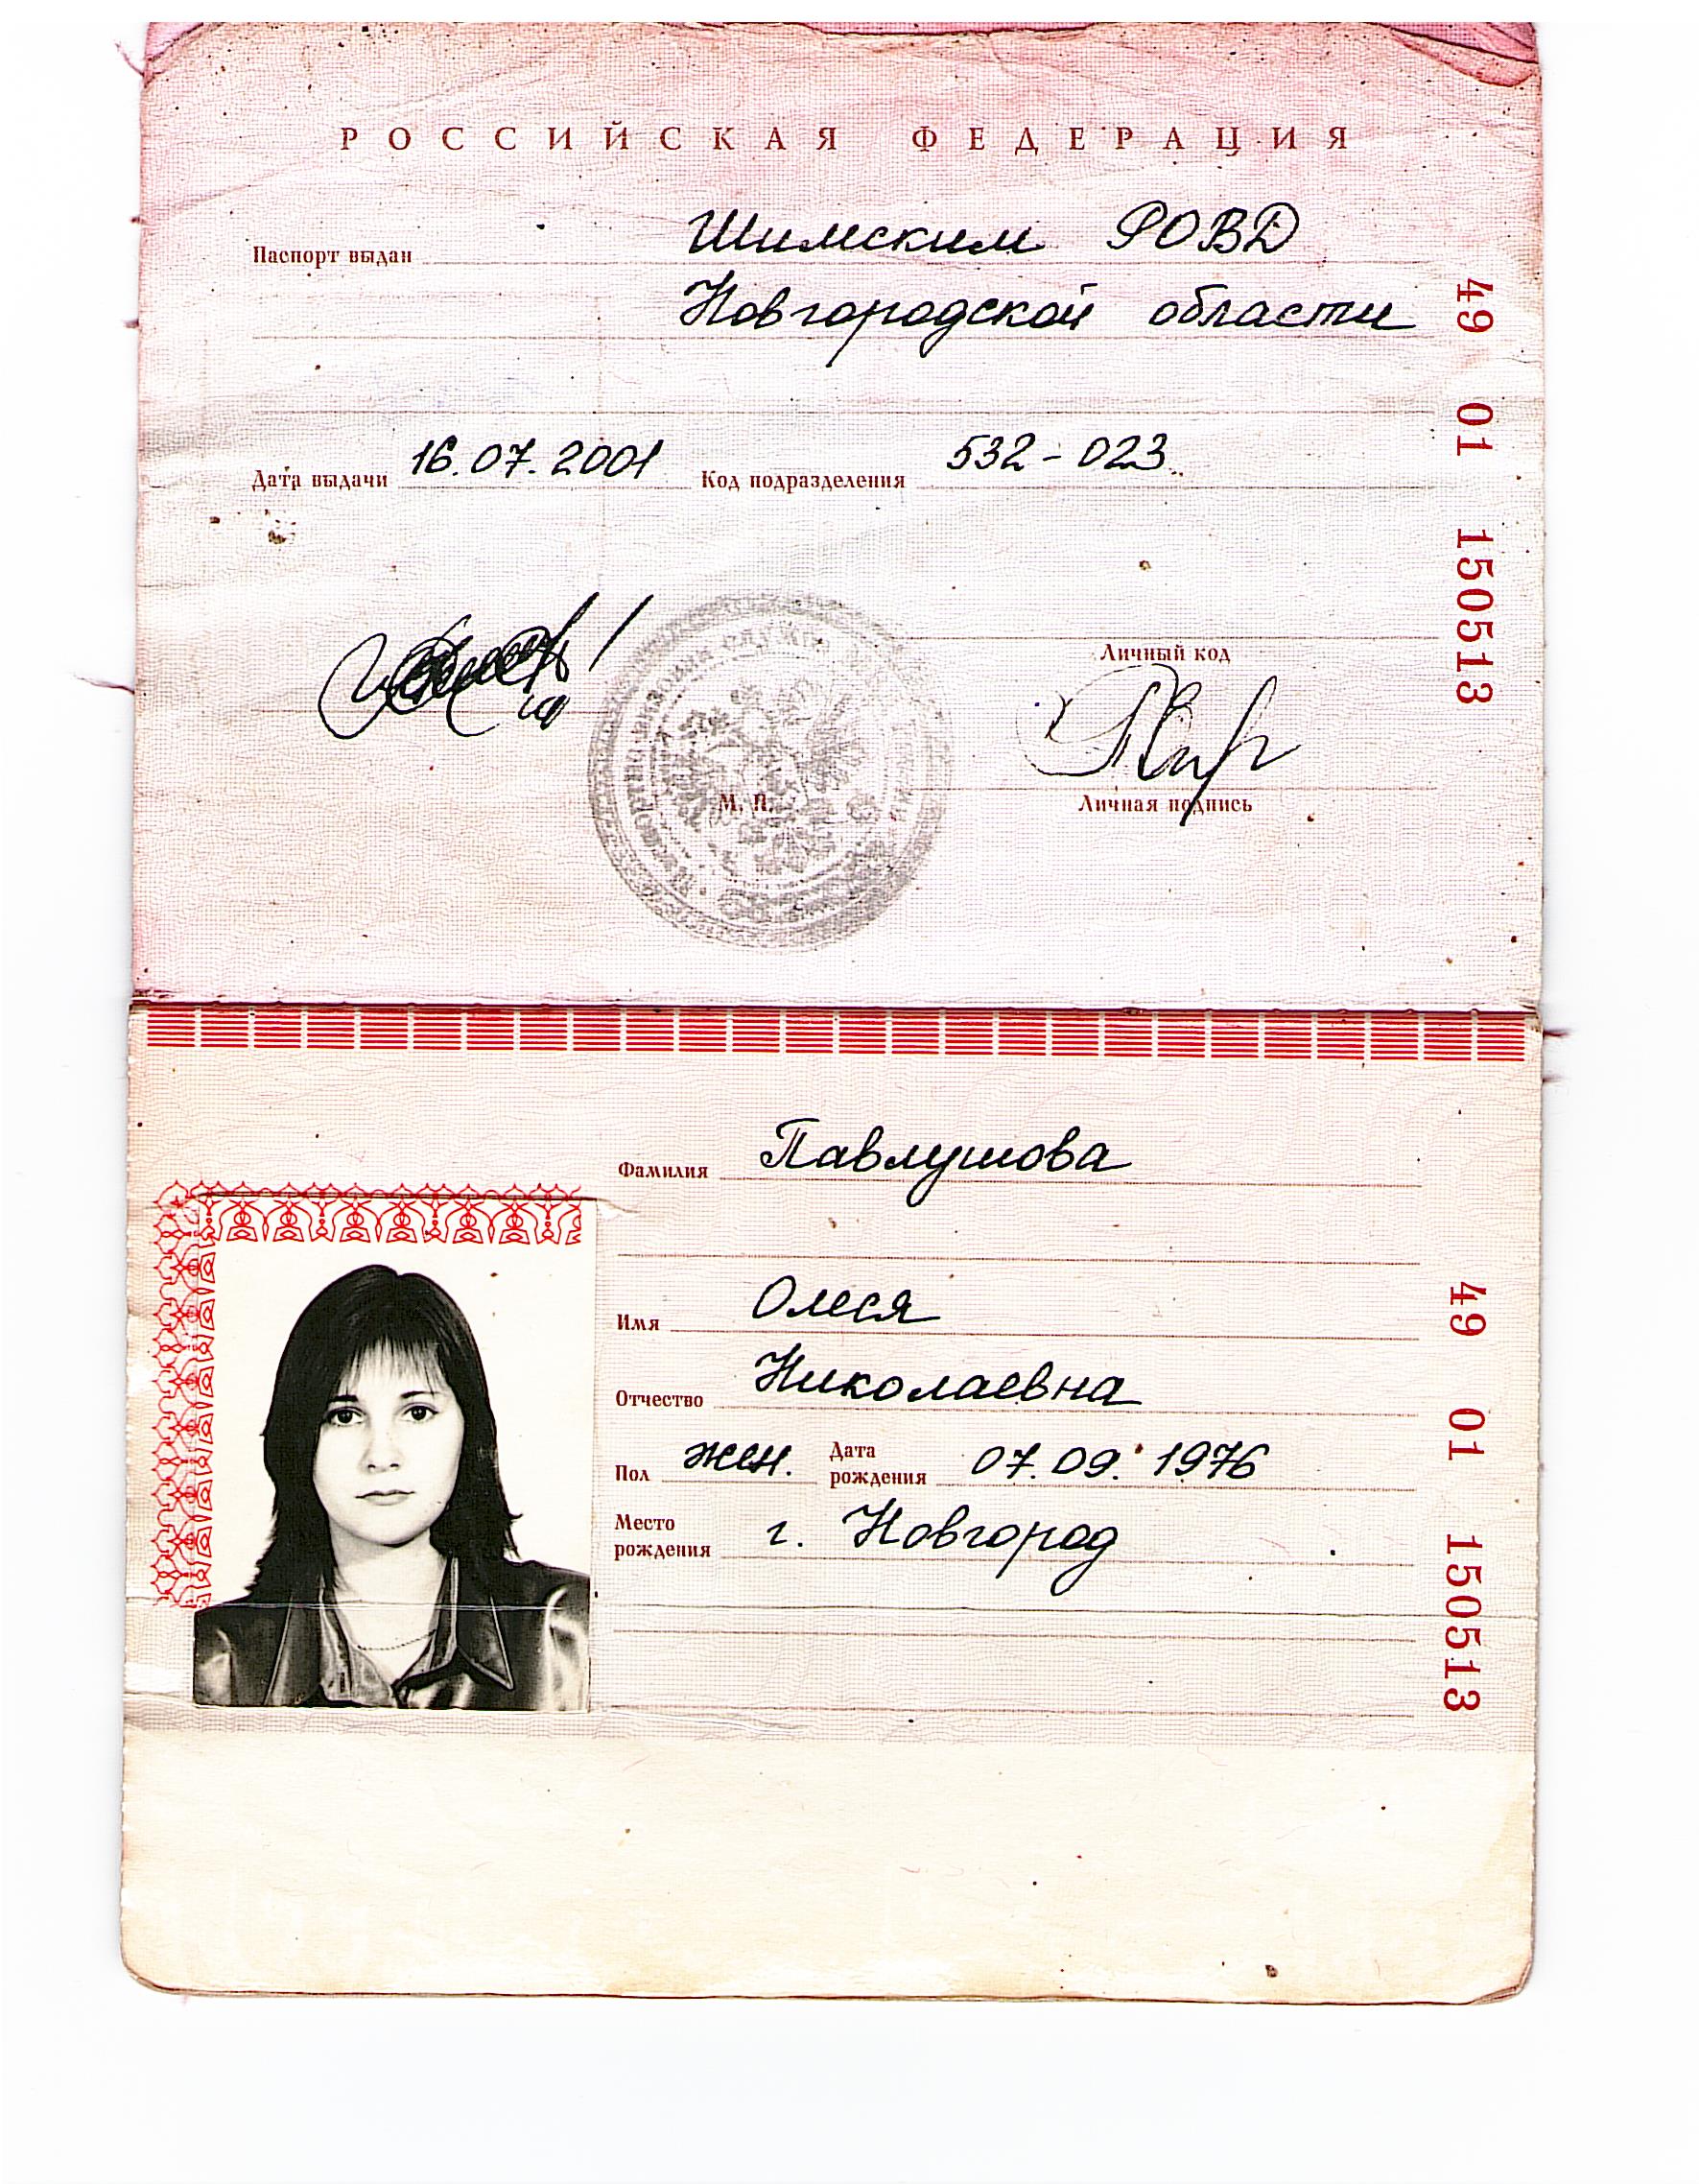 РОССИЙСКАЯ ФЕДЕРАЦИЯ
Паспорт выдан Шимским РОВД
Новгородской области
Дата выдачи 16.07.2001 Код подразделения 532-023
Личный код
М. П.
Личная подпись
49 01 150513
Фамилия Павлушова
Имя Олеся
Отчество Николаевна
Пол жен. Дата рождения 07.09.1976
Место рождения г. Новгород
49 01 150513